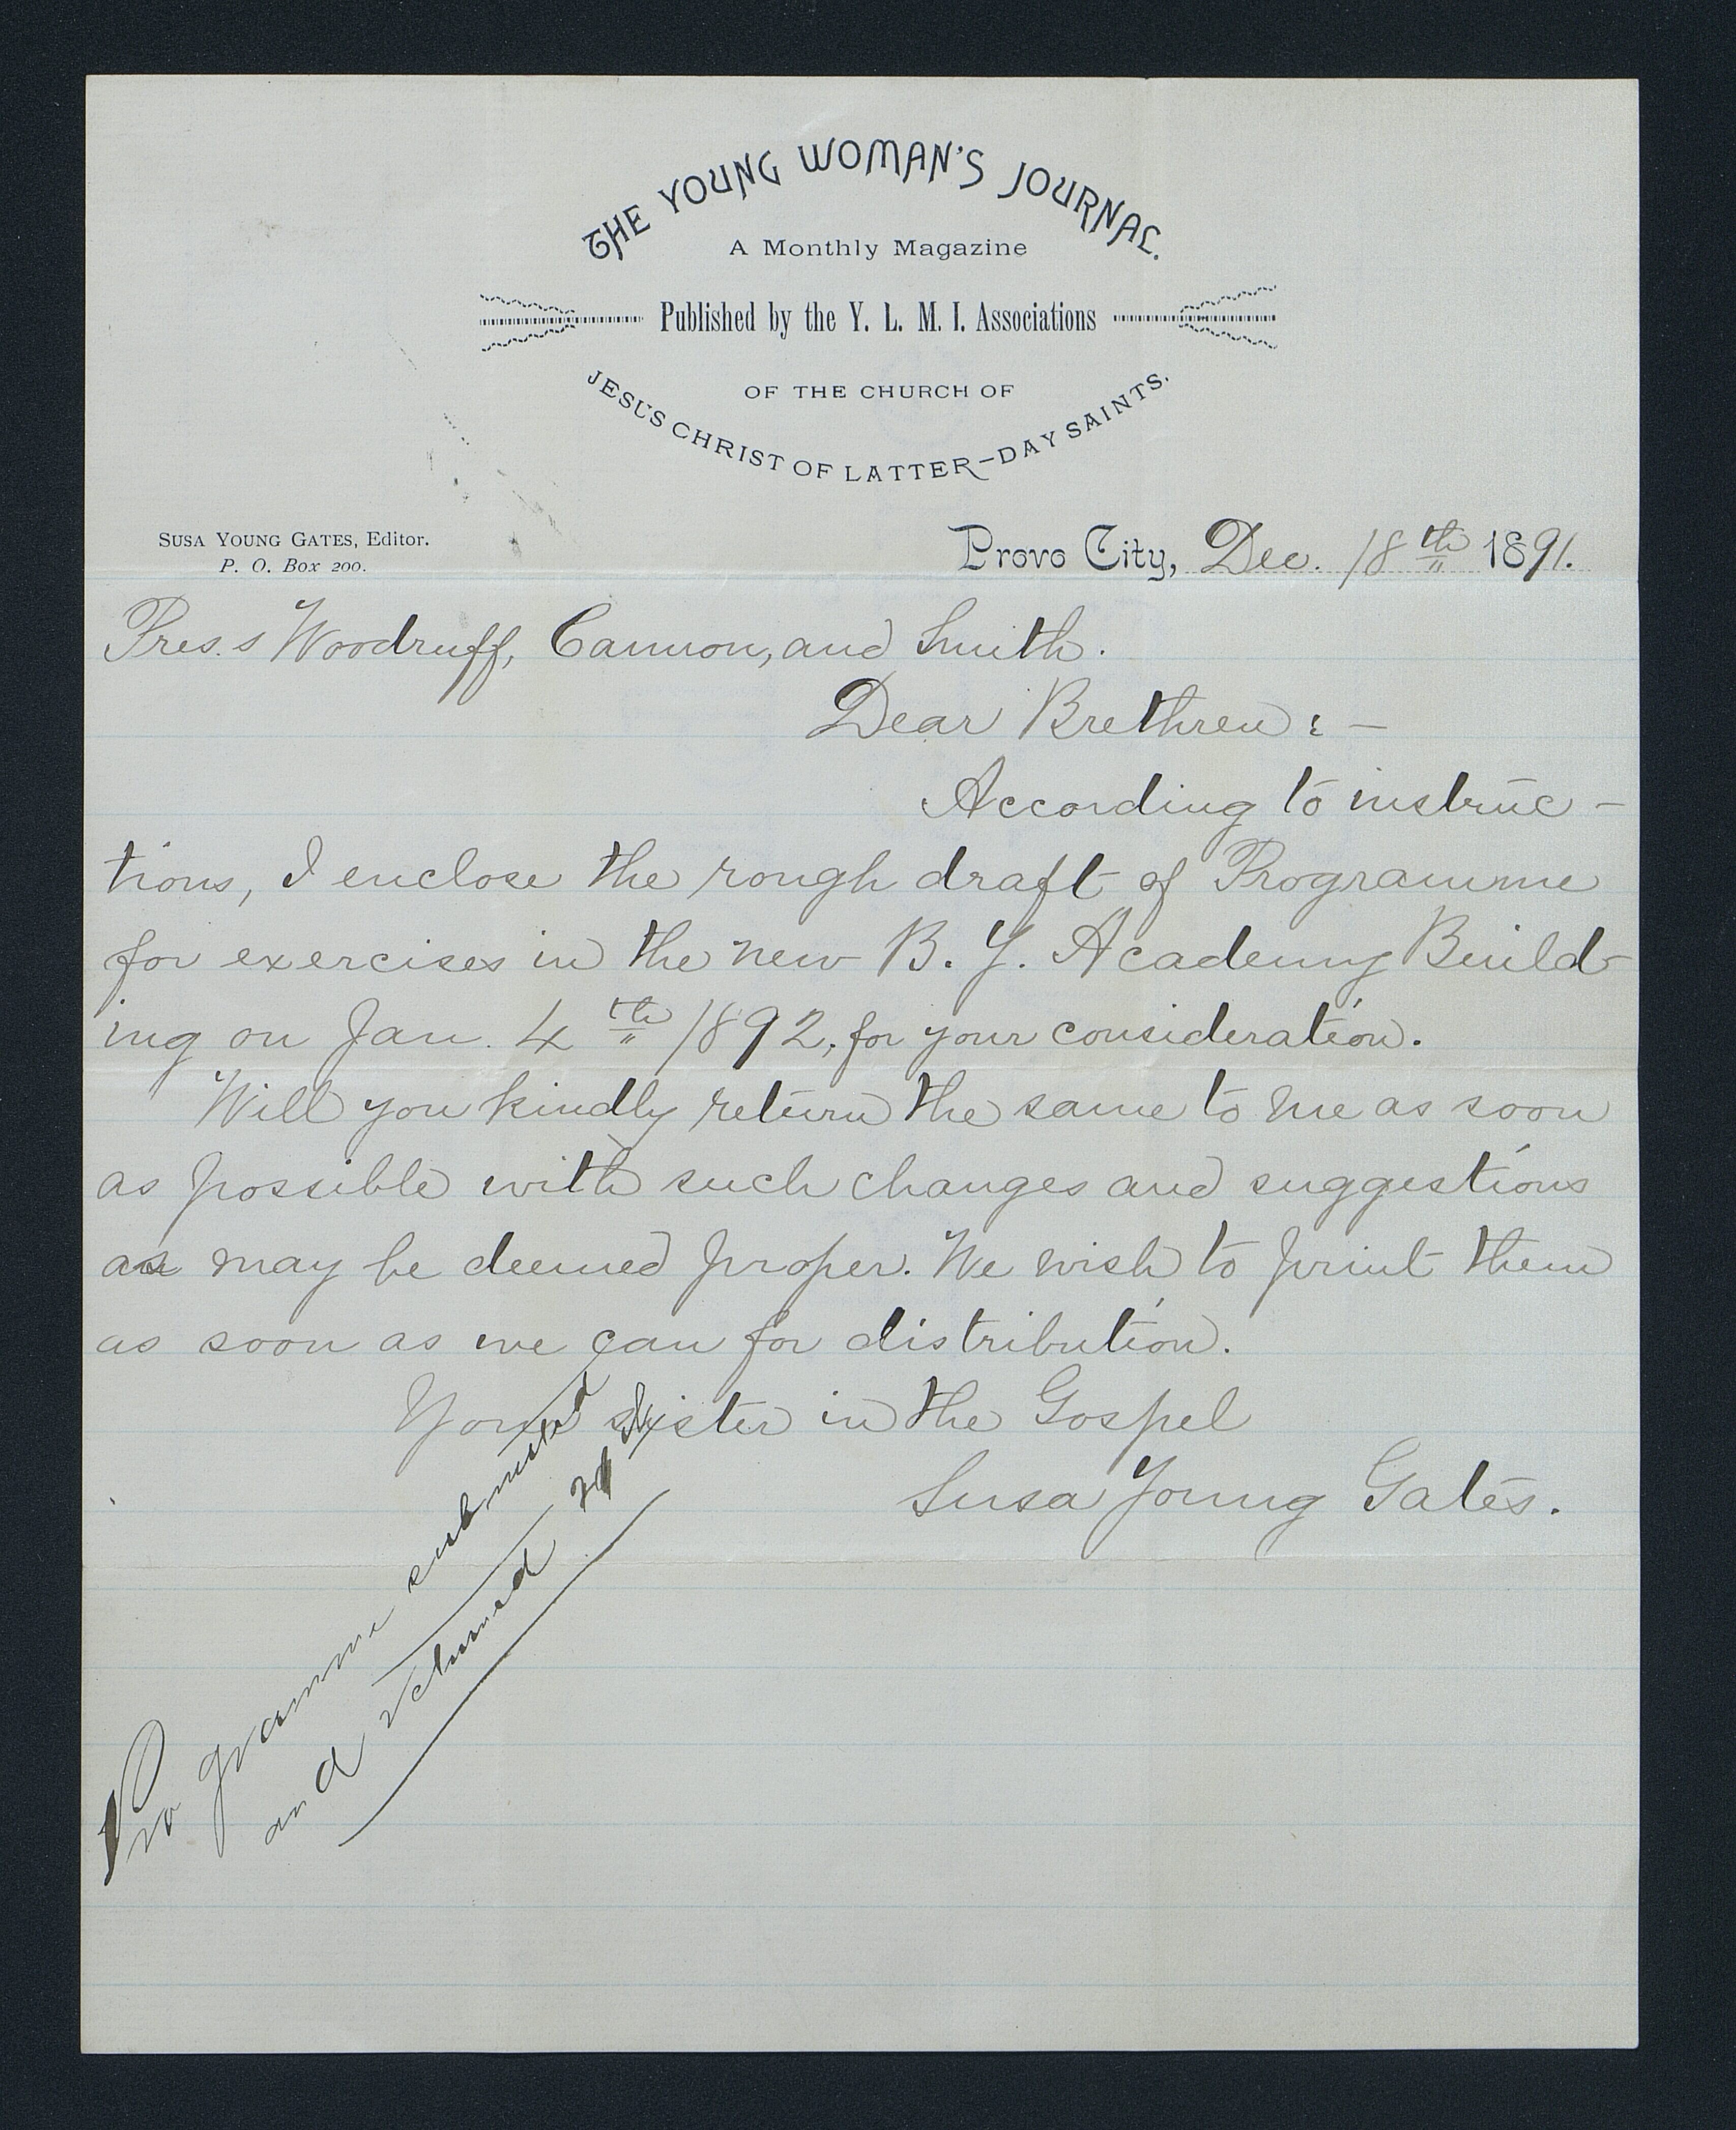 THE YOUNG WOMAN'S JOURNAL.
A Monthly Magazine
Published by the Y. L. M. I. Associations
OF THE CHURCH OF
JESUS CHRIST OF LATTER-DAY SAINTS.
SUSA YOUNG GATES, Editor.
P. O. Box 200.
Provo City, Dec. 18th 1891.
Pres.s Woodruff, Cannon, and Smith.
Dear Brethren:—
According to instruc-
tions, I enclose the rough draft of Programme
for exercises in the new B. Y. Academy Build-
ing on Jan. 4th 1892, for your consideration.
Will you kindly return the same to me as soon
as possible with such changes and suggestions
as may be deemed proper. We wish to print them
as soon as we can for distribution.
Your sister in the Gospel
Susa Young Gates.
Programme submitted
and returned